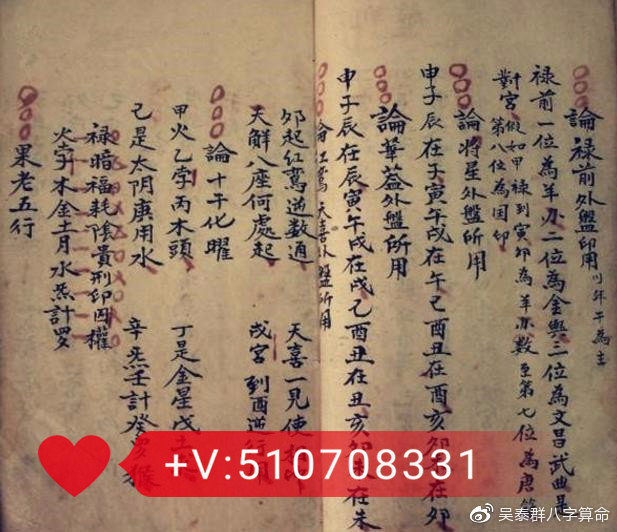 論祿前外盤印用 年午為主
祿前一位為羊刃二位為金輿三位為文昌武曲
對宮 假如甲祿到寅卯為羊刃数至第七位為唐
第八位為国印
論将星外盤所用
申子辰在子寅午戍在午巳酉丑在酉亥卯未在卯
論華蓋外盤所用
申子辰在辰寅午戍在戍巳酉丑在丑亥卯未在未
論紅鸞天喜外盤所用
卯起紅鸞逆数通 天喜一見便
天解八座何處起 戍宮到酉逆行
論十干化曜
甲火乙孛丙木頭 丁是金星戊
己是太阴庚用水 辛炁壬計癸羅猴
禄暗福耗陰貴刑印囚權
火孛木金土月水炁計羅
果老五行
+V:510708331
吴泰群八字算命